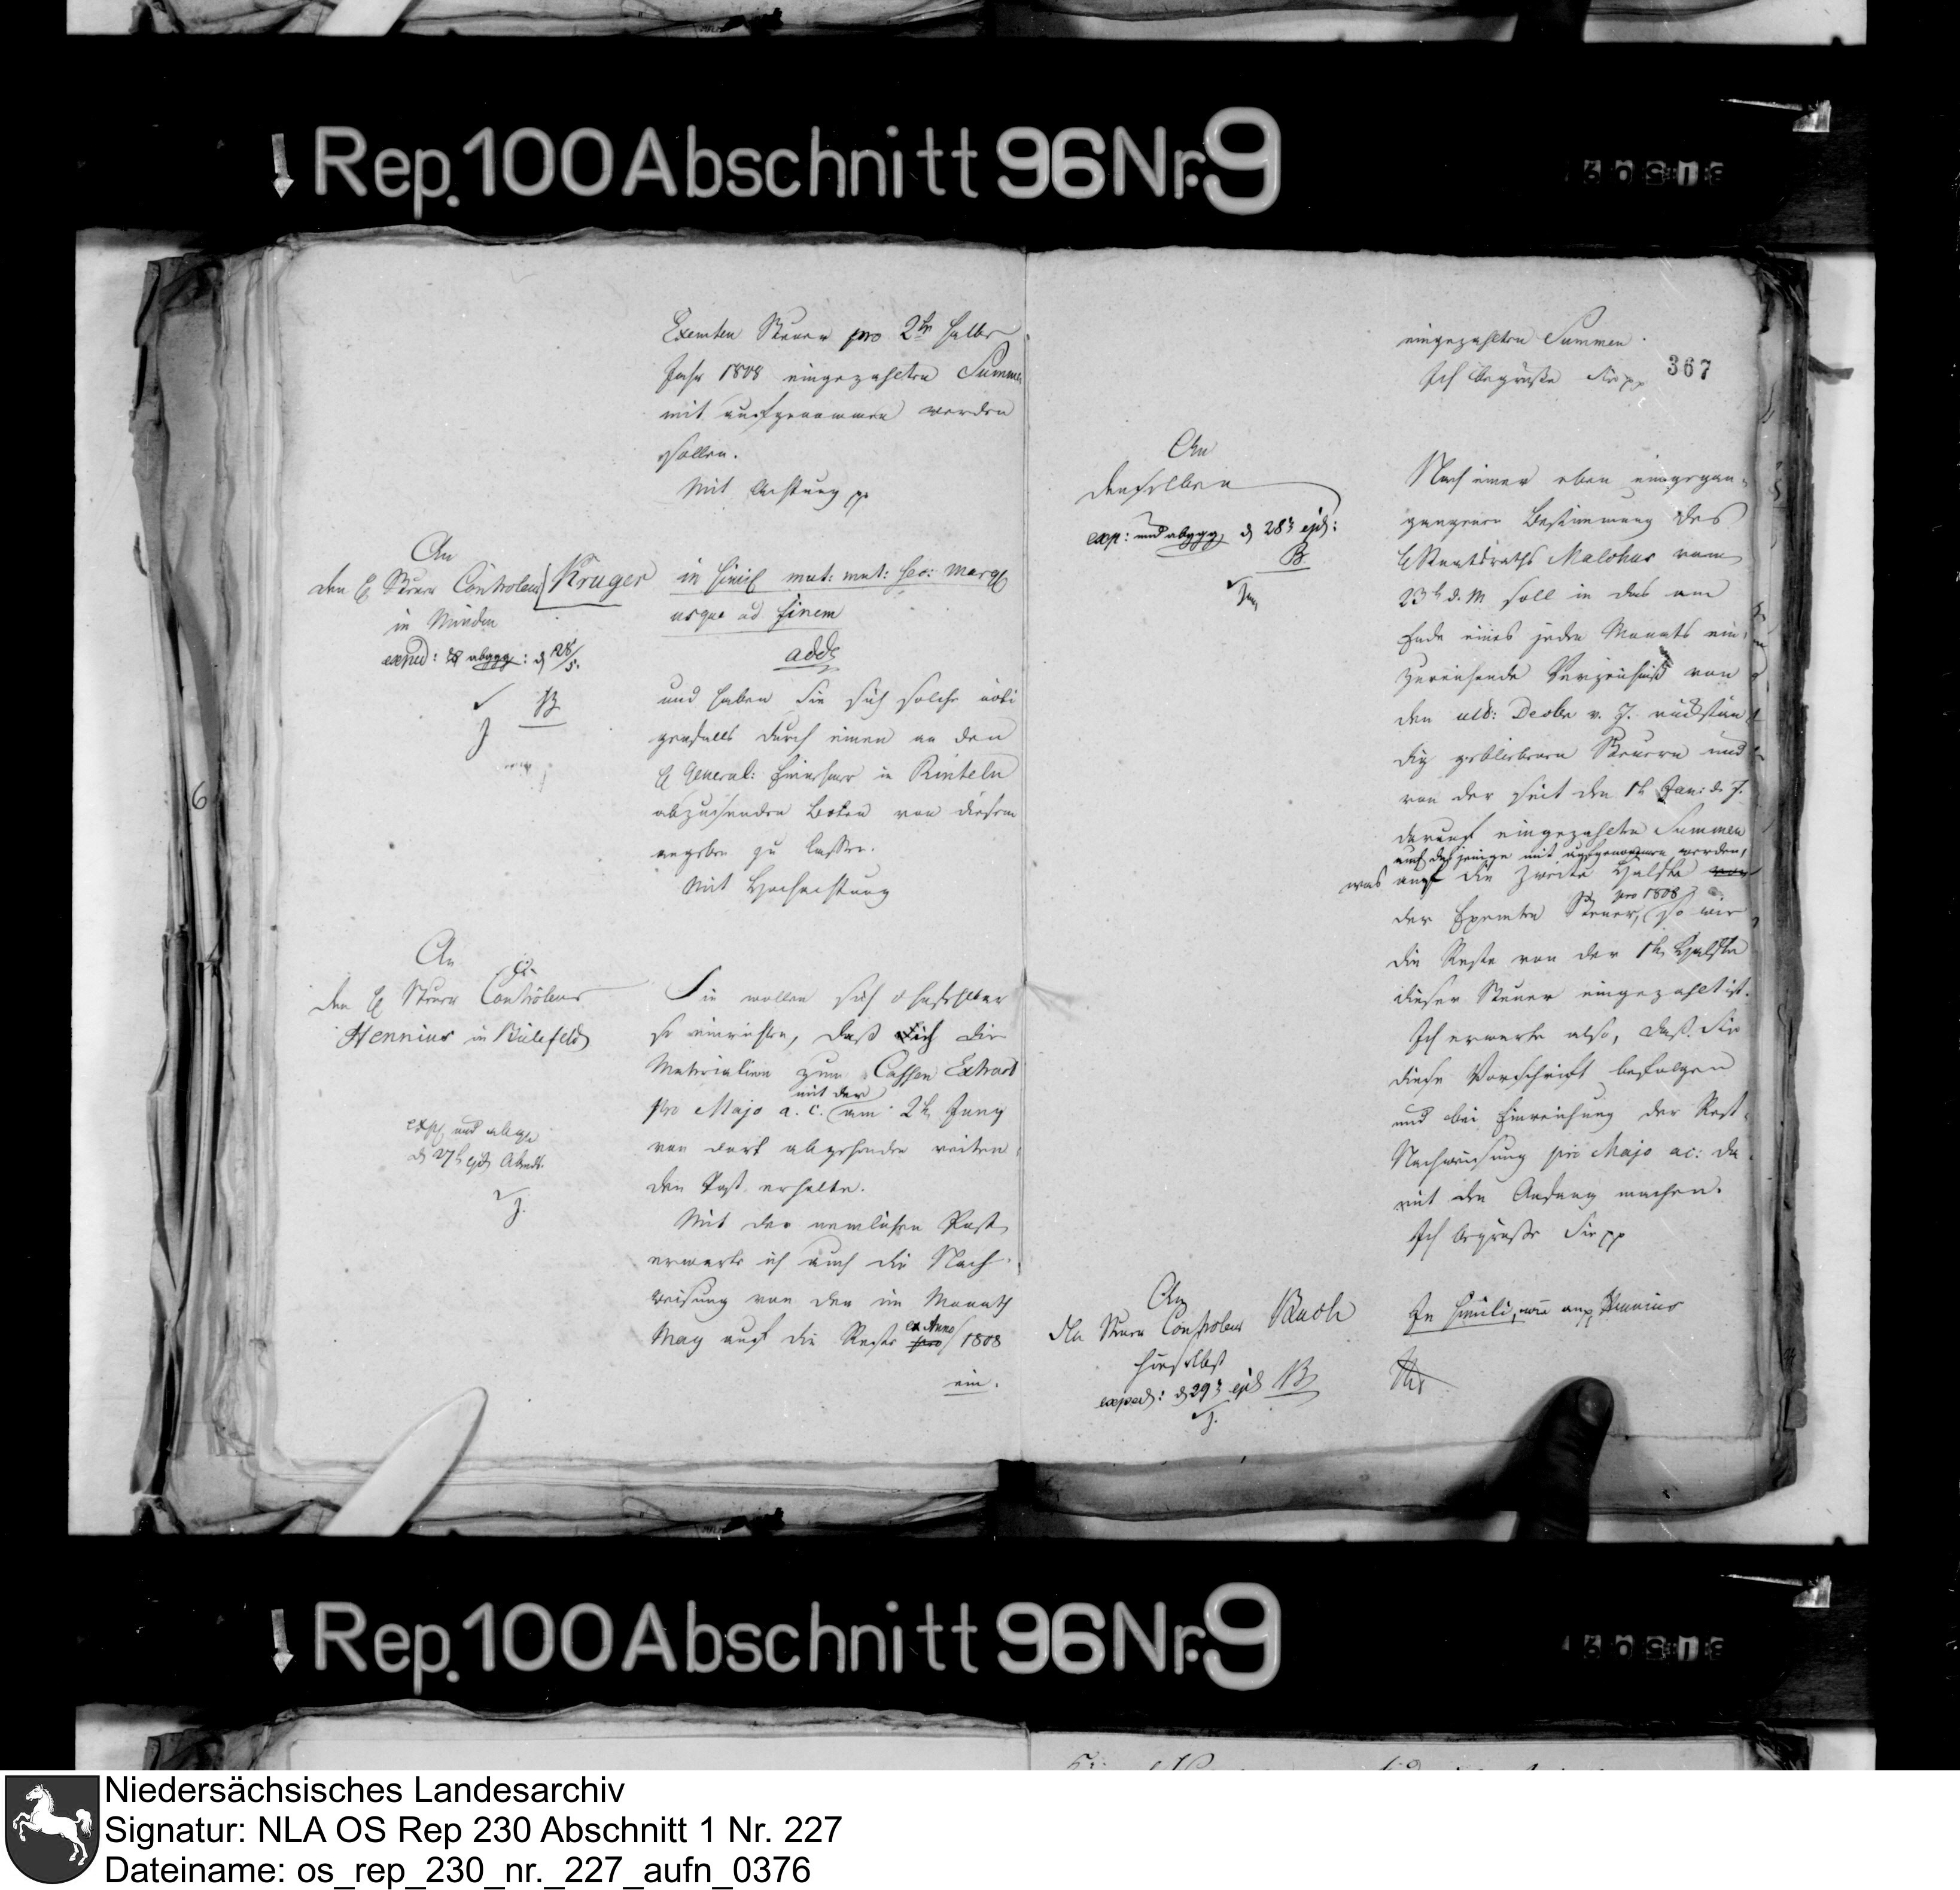 Rep. 100 Abschnitt 96 Nr. 9
Exemten Steuer pro 2te halbe
Jahr 1808 eingezahlten Summe
mit aufgenommen werden
sollen.
Mit Achtung pp
An
den H Steuer Controleur Kruger
in Minden
exped: & abgeg: d 28/5.
B
in simil mut: mut: sec: marg
usque ad finem
adde
und haben Sie sich solche
durch einen an den
H General: Einnehmer in Rinteln
abzusendenden Boten von diesem
angeben zu lassen.
Mit Hochachtung
An
den H Steuer Controleur
Hennius in Bielefeld
exp und abgeg
d 27t ejd Abends.
Sie wollen sich ohnfehlbar
so einrichten, daß ich die
Materialien zum Cassen Extract
pro Majo a. c. mit der am 2t Juny
von dort abgehenden reiten
den Post erhalte.
Mit der nemlichen Post
erwarte ich auch die Nach-
weisung von den im Monath
May auf die Reste pro ex Anno 1808
ein.
367
eingezahlten Summen.
Ich begrüße Sie pp
An
denselben
exp: und abgeg d 28t ejd:
B.
Nach einer eben eingegan-
gangenen Bestimmung des
H Staatsraths Malchus vom
23t d. M soll in das am
Ende eines jeden Monats ein-
zureichende Verzeichniß von
den ult: Decbr v. J. rückstän
dig gebliebenen Steuern und
von der seit den 1t Jan: d. J.
darauf eingezahlten Summen
auch dasjenige mit aufgenommen werden,
was auf die zweite Hälfte von
der Exemten Steuer, pro 1808 so wie
die Reste von der 1t Hälfte
dieser Steuer eingezahlt ist.
Ich erwarte also, daß Sie
diese Vorschrift befolgen
und bei Einreichung der Rest-
Nachweisung pro Majo ac: da
mit den Anfang machen.
Ich begrüße Sie pp
An
den Steuer Controleur Buch
hieselbst
exped: d 29t ejd B
In simili, wie an Hennius
Rep. 100 Abschnitt 96 Nr. 9
Niedersächsisches Landesarchiv
Signatur: NLA OS Rep 230 Abschnitt 1 Nr. 227
Dateiname: os_rep_230_nr._227_aufn_0376